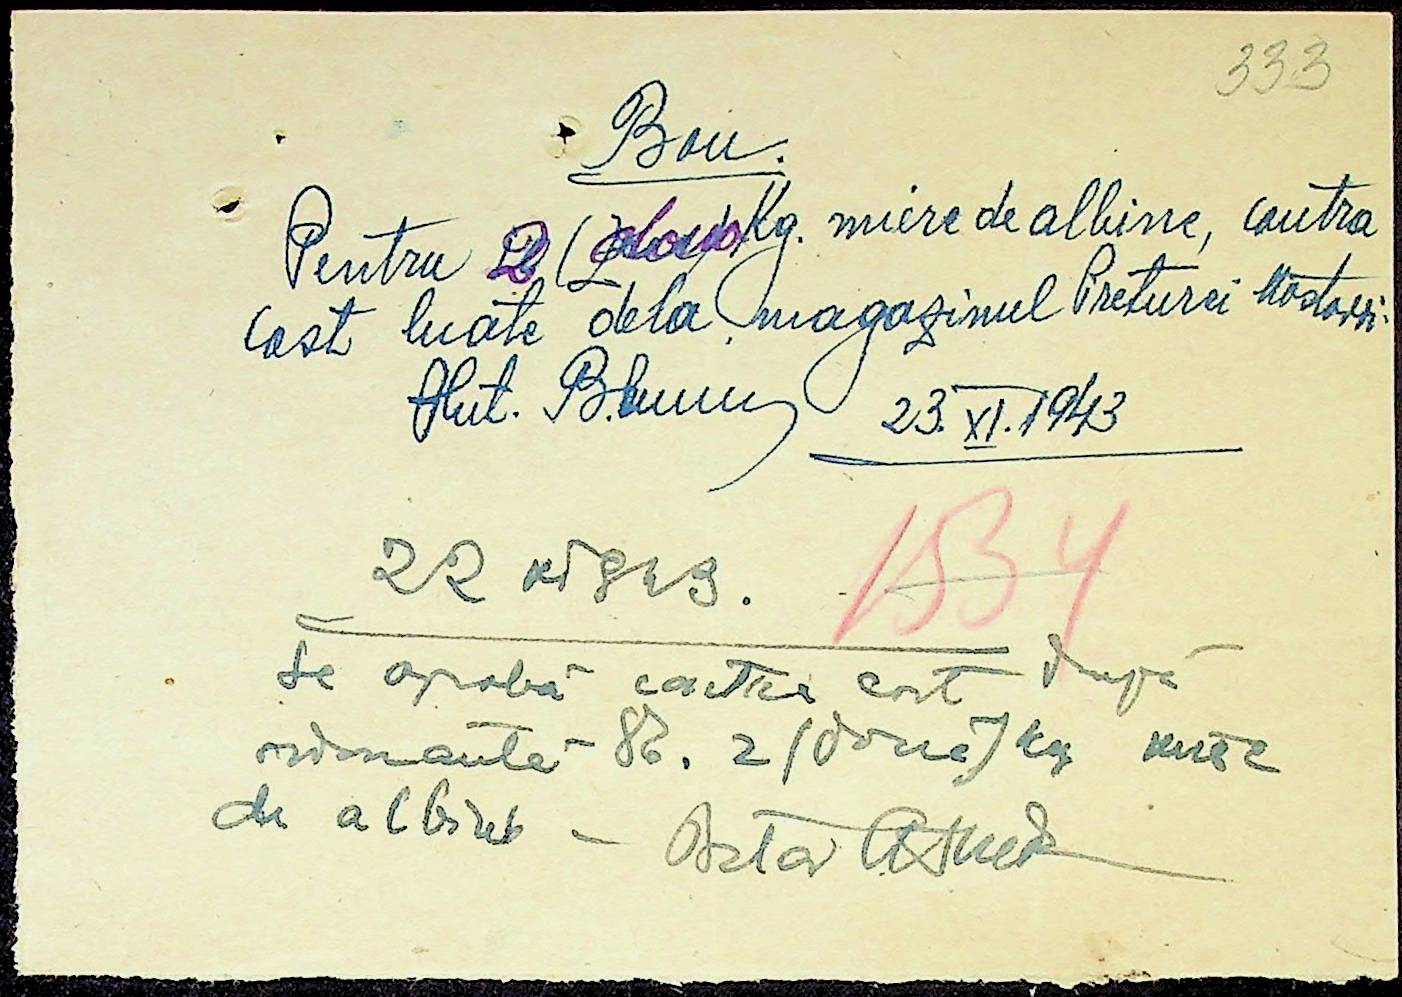 333
Bon.
Pentru 2 (două) Kg. miere de albine, contra
cost luate dela magazinul Preturei Mostovoi.
23.XI.1943
22 XI 943.
1534
Se aprobă contra cost după
ordonanța 86. 2 (două) kg miere
de albine –